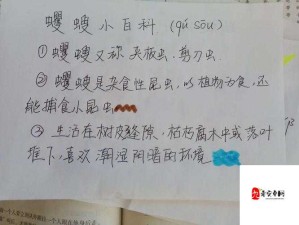 蠼螋小百科(qú sōu)
①蠼螋又称夹板虫、剪刀虫
②蠼螋是杂食性昆虫，以植物为食，还
能捕食小昆虫
③生活在树皮缝隙，枯朽腐木中或落叶
堆下，喜欢潮湿阴暗的环境